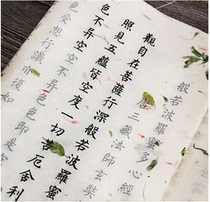 般若波羅蜜多心經
唐三藏法師玄奘
觀自在菩薩行深般若波羅蜜
照見五蘊皆空度一切苦厄舍利
色不異空空不異色色即是
色受想行識亦復如